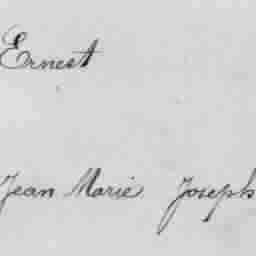 Ernest
Jean Marie Joseph